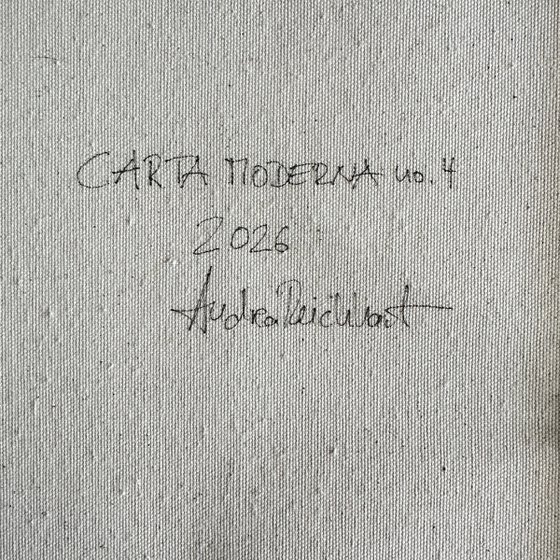 CARTA MODERNA no. 4
2026
Andrea Reichhart